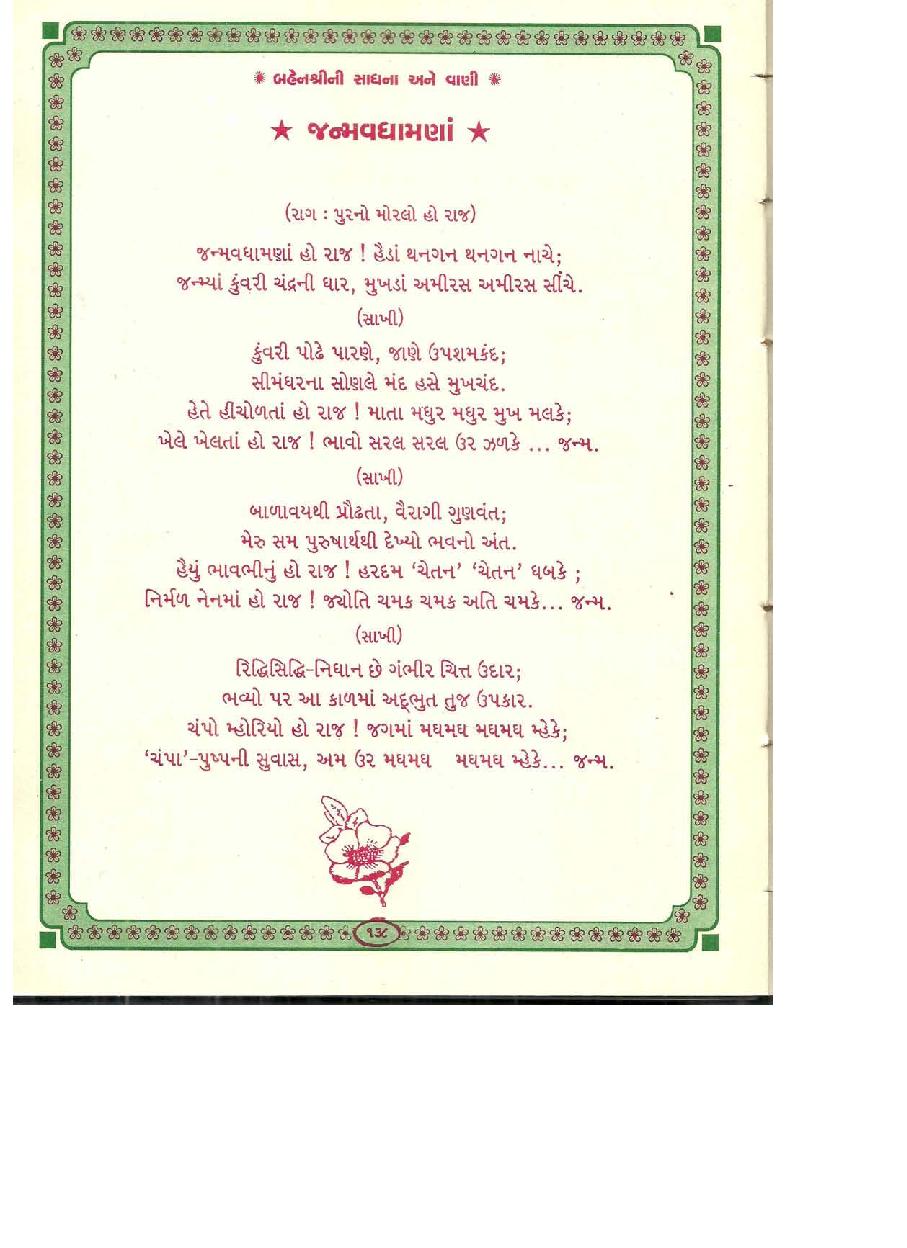 ❋ બહેનશ્રીની સાધના અને વાણી ❋
★ જન્મવધામણાં ★
(રાગ : પુરનો મોરલો હો રાજ)
જન્મવધામણાં હો રાજ ! હૈડાં થનગન થનગન નાચે;
જન્મ્યાં કુંવરી ચંદ્રની ધાર, મુખડાં અમીરસ અમીરસ સીંચે.
(સાખી)
કુંવરી પોઢે પારણે, જાણે ઉપશમકંદ;
સીમંધરના સોણલે મંદ હસે મુખચંદ.
હેતે હીંચોળતાં હો રાજ ! માતા મધુર મધુર મુખ મલકે;
ખેલે ખેલતાં હો રાજ ! ભાવો સરલ સરલ ઉર ઝળકે ... જન્મ.
(સાખી)
બાળાવયથી પ્રૌઢતા, વૈરાગી ગુણવંત;
મેરુ સમ પુરુષાર્થથી દેખ્યો ભવનો અંત.
હૈયું ભાવભીનું હો રાજ ! હરદમ ‘ચેતન’ ‘ચેતન’ ધબકે ;
નિર્મળ નેનમાં હો રાજ ! જ્યોતિ ચમક ચમક અતિ ચમકે... જન્મ.
(સાખી)
રિદ્ધિસિદ્ધિ-નિધાન છે ગંભીર ચિત્ત ઉદાર;
ભવ્યો પર આ કાળમાં અદ્ભુત તુજ ઉપકાર.
ચંપો મ્હોરિયો હો રાજ ! જગમાં મઘમઘ મઘમઘ મ્હેકે;
‘ચંપા’-પુષ્પની સુવાસ, અમ ઉર મઘમઘ મઘમઘ મ્હેકે... જન્મ.
૧૩૮